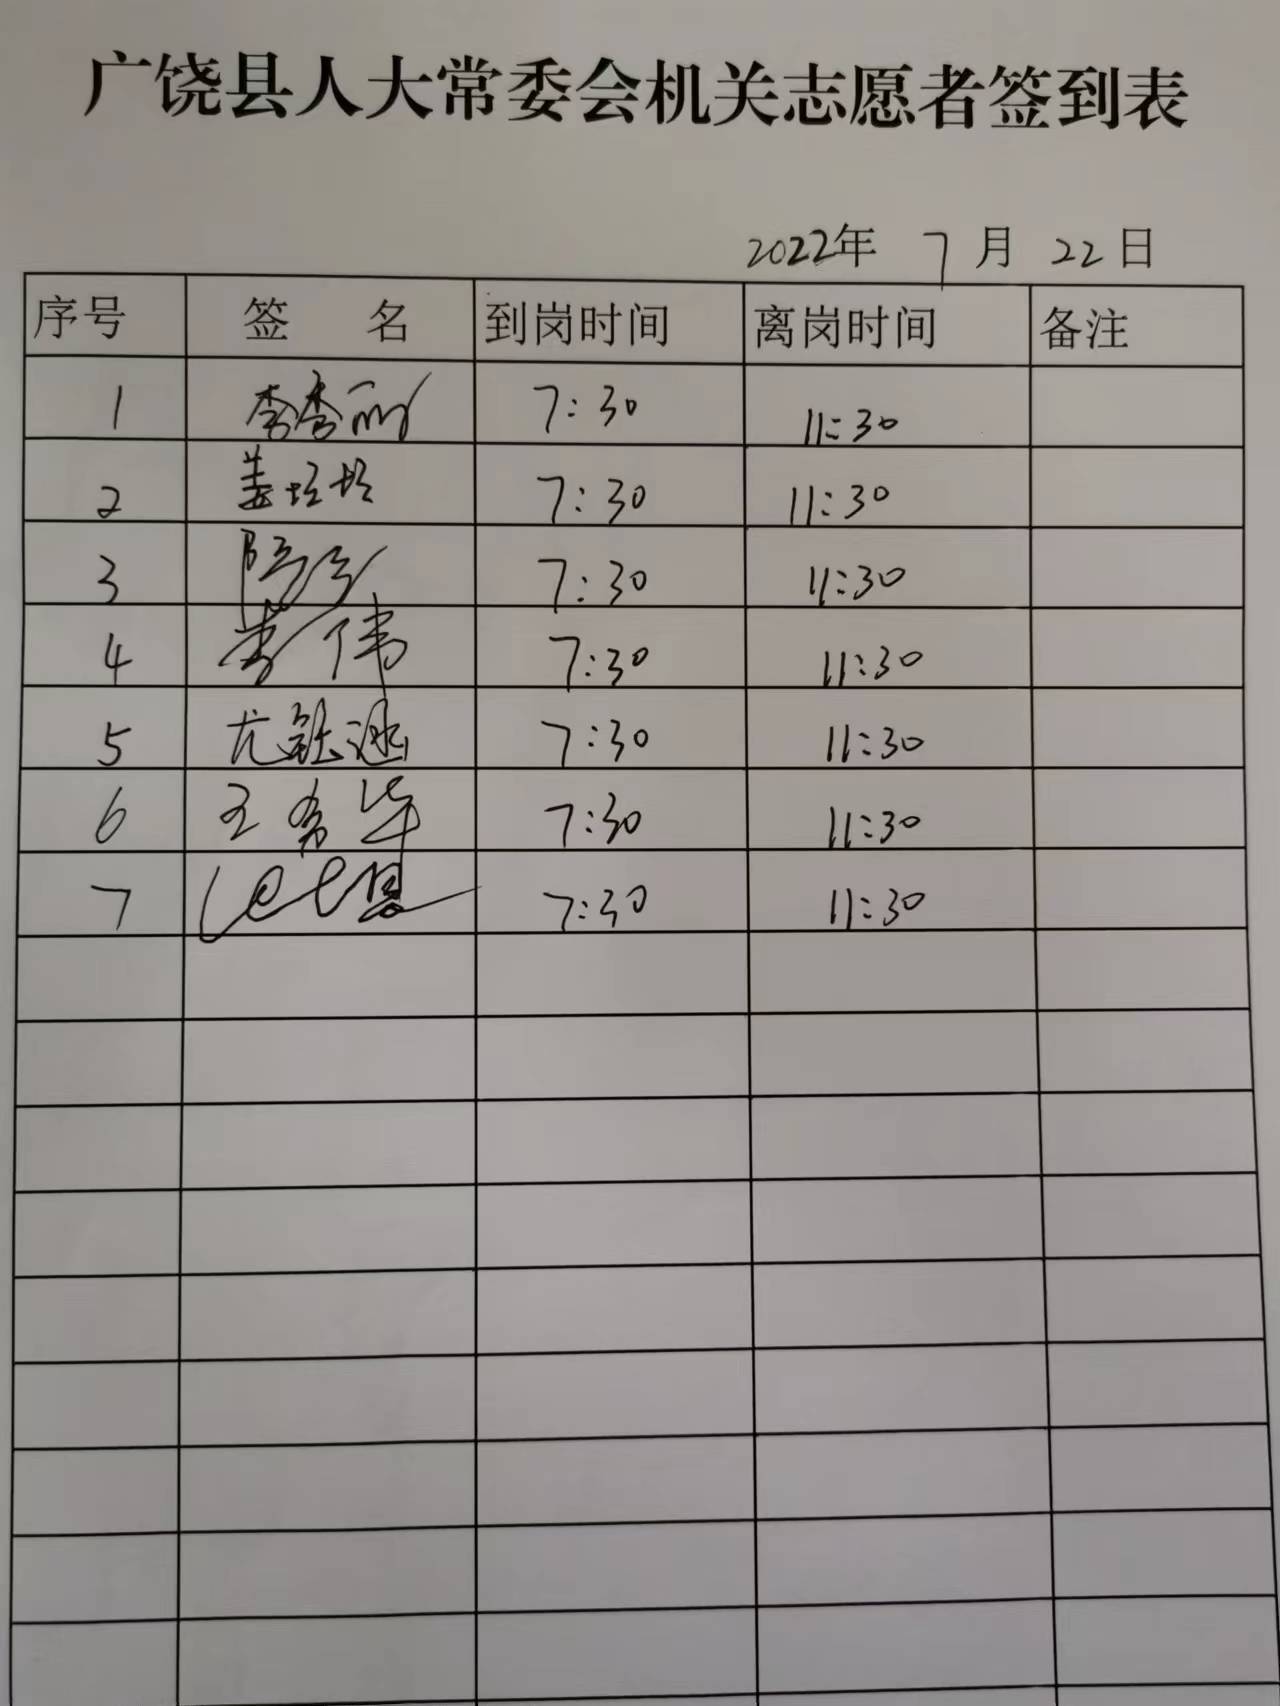 广饶县人大常委会机关志愿者签到表
2022年 7月 22日
序号 签 名 到岗时间 离岗时间 备注
1 李秀丽 7:30 11:30
2 姜 7:30 11:30
3 7:30 11:30
4 伟 7:30 11:30
5 尤 7:30 11:30
6 王希华 7:30 11:30
7 7:30 11:30